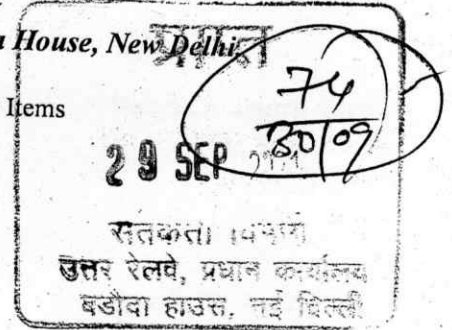 House, New Delhi
Items
74
30/09
29 SEP
सतर्कता विभाग
उत्तर रेलवे, प्रधान कार्यालय
बडौदा हाउस, नई दिल्ली